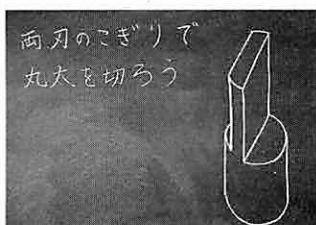 両刃のこぎりで
丸太を切ろう